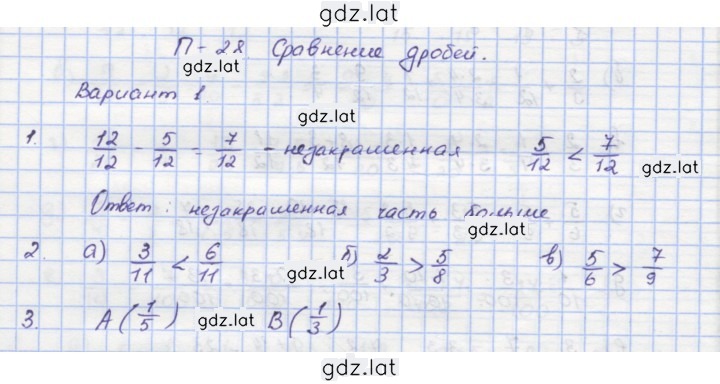 gdz.lat
П-28. Сравнение дробей.
gdz.lat
Вариант 1.
gdz.lat
1. 12/12 - 5/12 = 7/12 - незакрашенная 5/12 < 7/12
gdz.lat
Ответ: незакрашенная часть больше
gdz.lat
2. а) 3/11 < 6/11 б) 2/3 > 5/8 в) 5/6 > 7/9
gdz.lat
3. A(1/5) B(1/3)
gdz.lat
gdz.lat